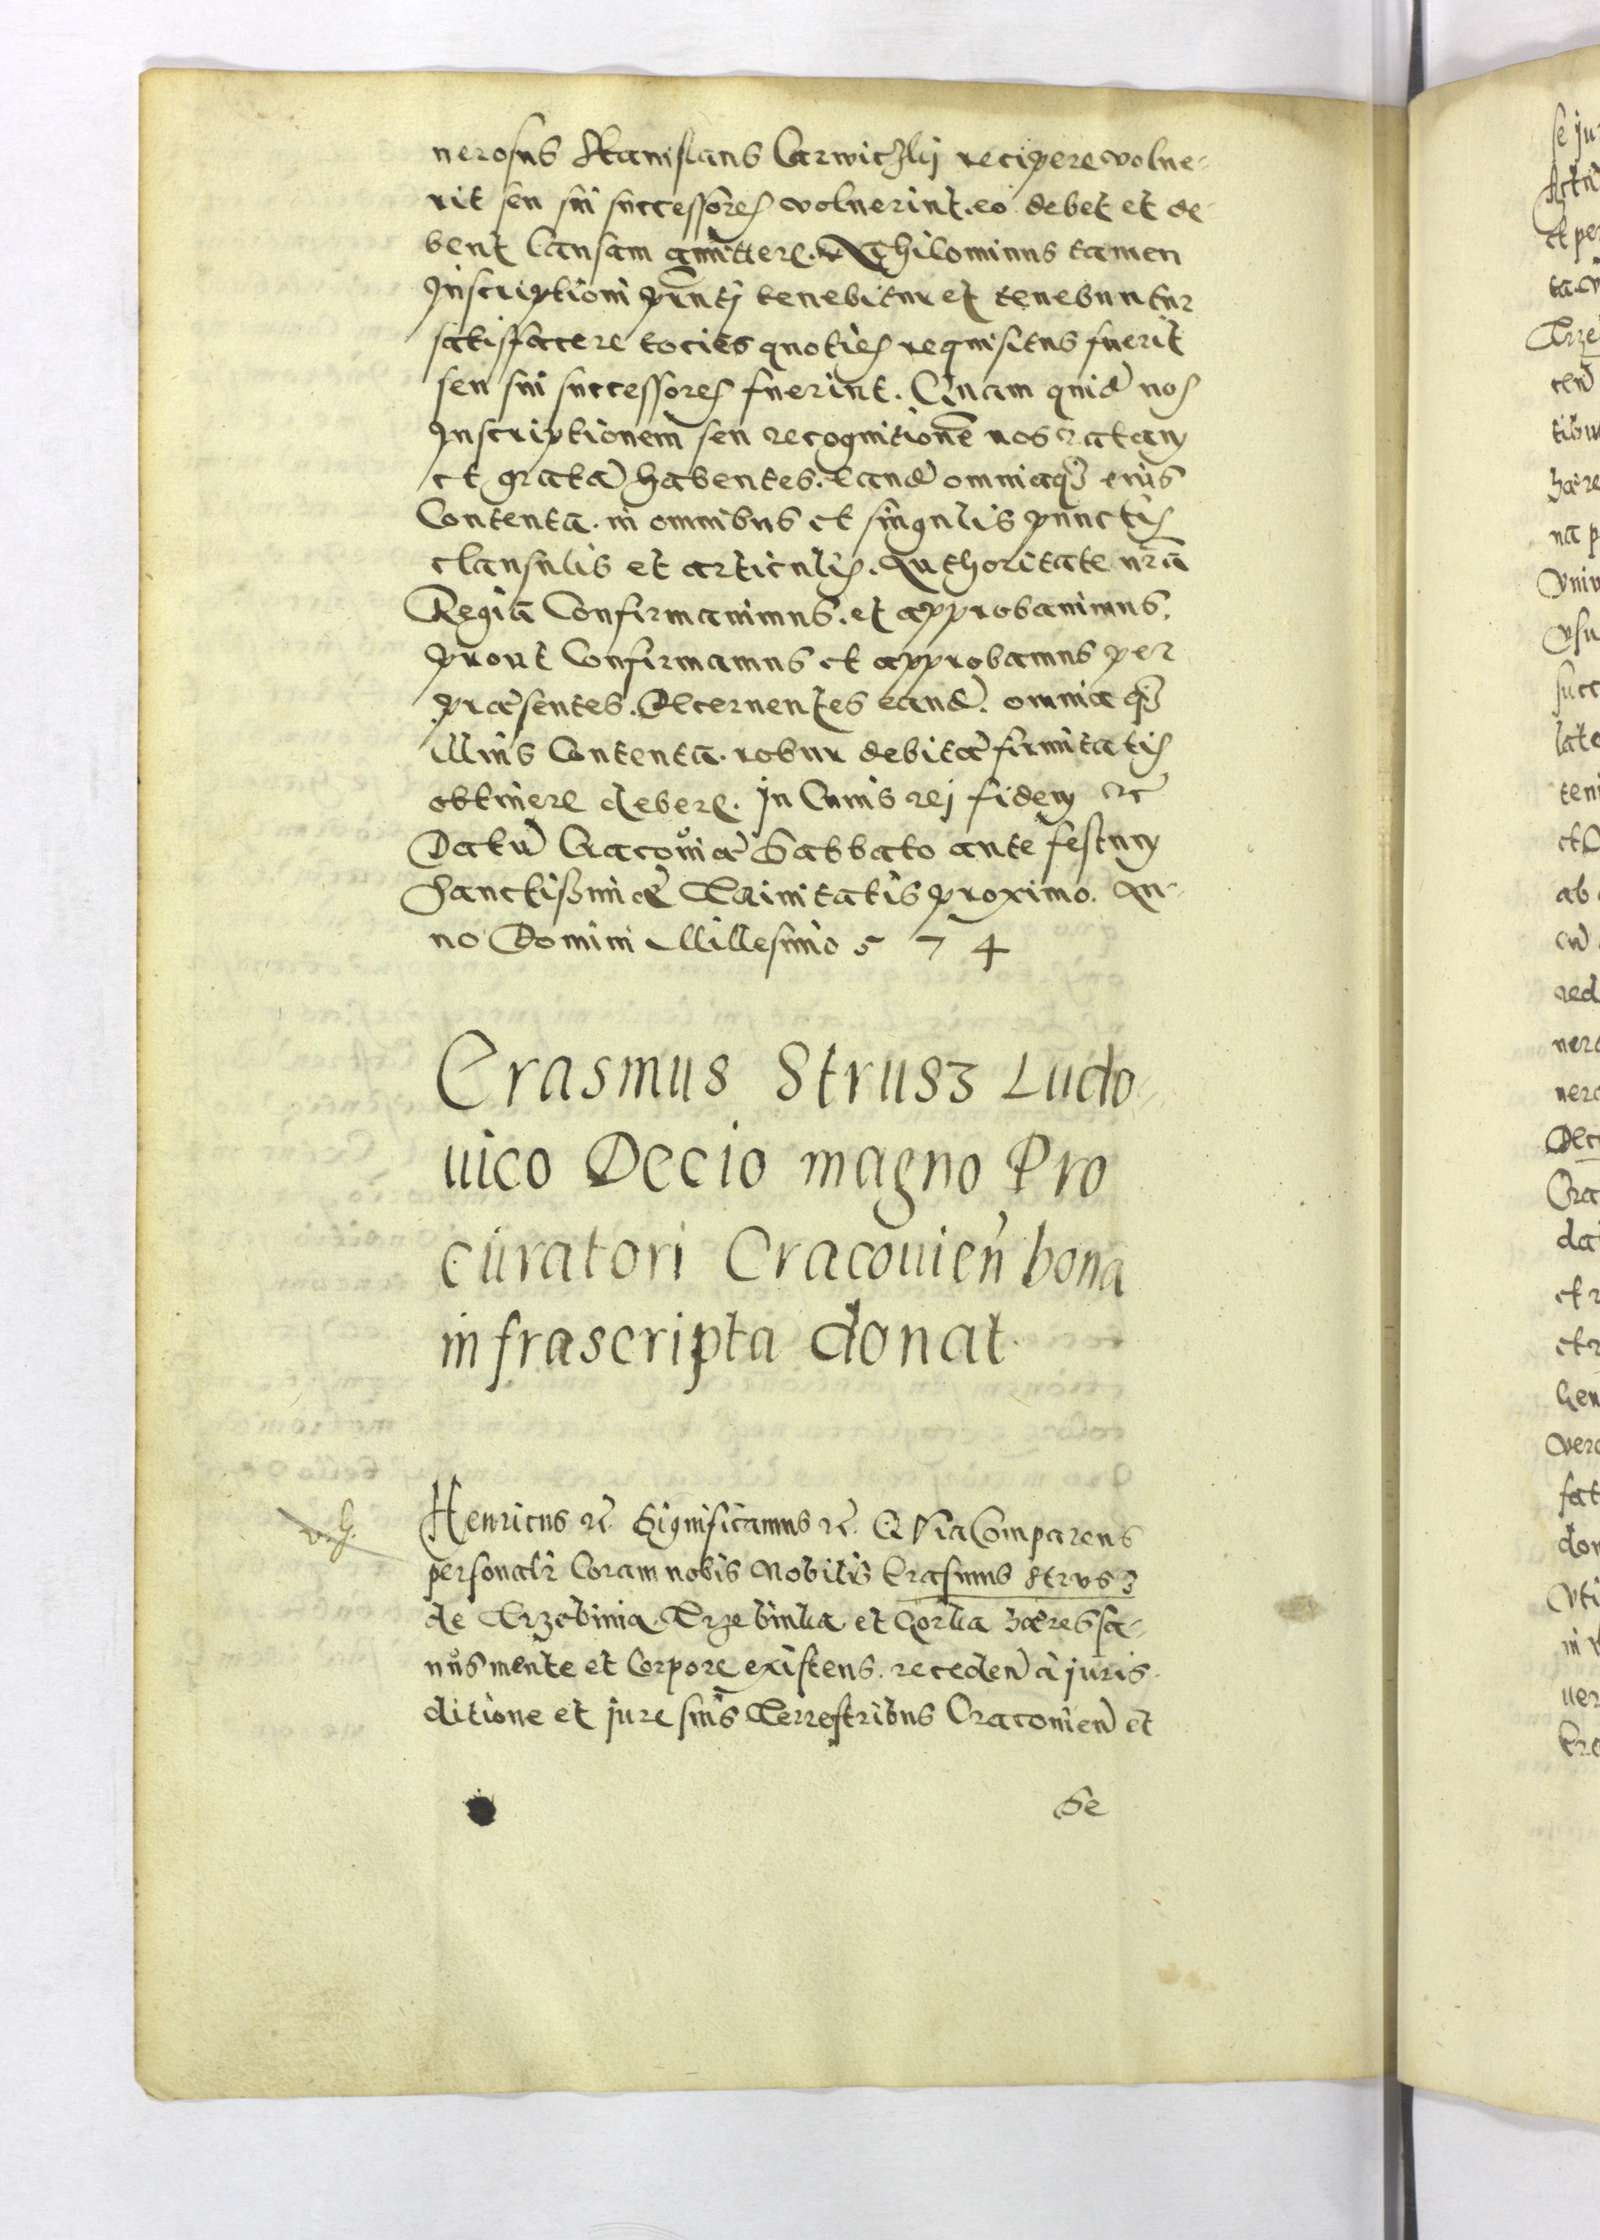 nerosus Stanislaus Carwiczkij recipere volue-
rit seu sui successores voluerint. eo debet et de-
bent Causam amittere. Nihilominus tamen
Inscriptioni pnti tenebitur et tenebuntur
satisfacere tocies quoties requisitus fuerit
seu sui successores fuerint. Quam quid nos
Inscriptionem seu recognitione nos ratam
et grata habentes. Eand omniaq eius
Contenta. in omnibus et singulis punctis
clausulis et articulis. Authoritate nra
Regia Confirmauimus. et approbauimus.
prout Confirmamus et approbamus per
præsentes. Decernentes eand. omnia q
illius Contenta. robur debitæ firmitatis
obtinere debere. In Cuius rej fidem &c
Datu Cracouiæ Sabbato ante festum
Sanctissimæ Trinitatis proximo. An-
no Domini Millesimo 5 7 4
Erasmus Strusz Ludo-
uico Decio magno Pro
curatori Cracouien bona
infrascripta donat.
Henricus &c. Significamus &c. Quia Comparens
personalr Coram nobis Nobilis Erasmus Strusz
de Trzebinia Trzebinka et Gorka hæres sa-
nus mente et Corpore existens. receden a juris-
ditione et jure suis Terrestribus Cracouien et
Se